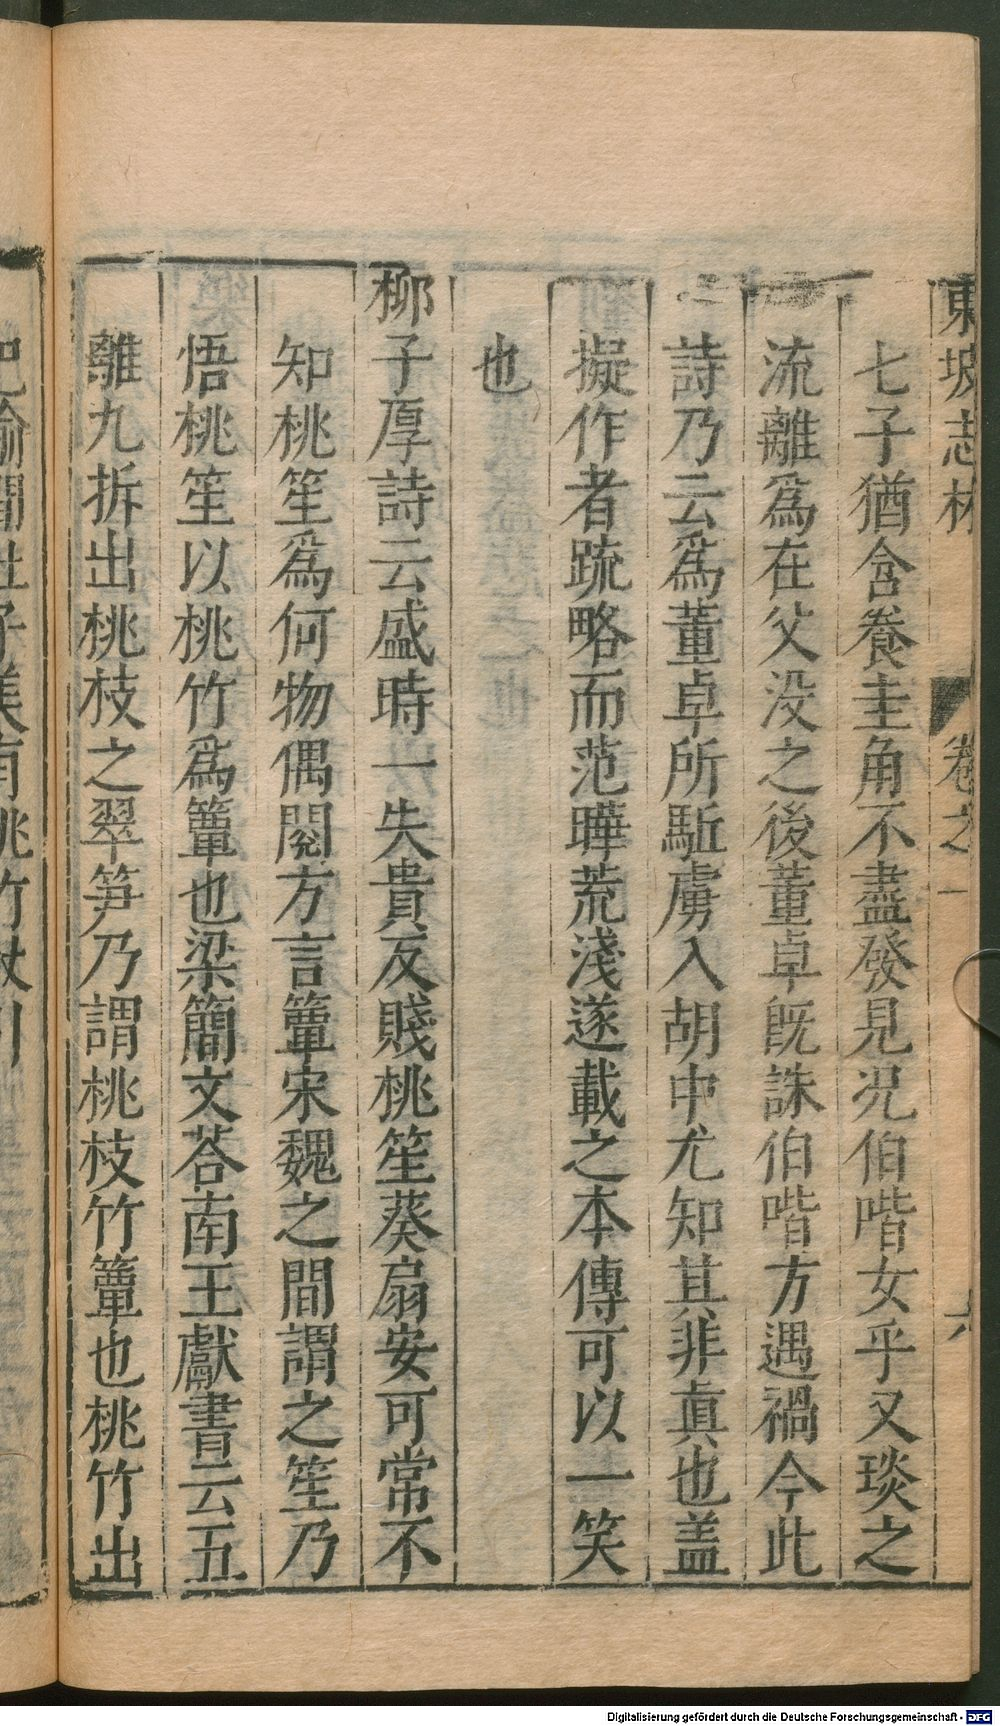 東坡志林 卷之一 六
七子猶含養圭角不盡發見况伯喈女乎又琰之
流離爲在父没之後董卓既誅伯喈方遇禍今此
詩乃云爲董卓所駈虜入胡中尤知其非真也盖
擬作者疏略而范曄荒淺遂載之本傳可以一笑
也
柳子厚詩云盛時一失貴反賤桃笙葵扇安可常不
知桃笙爲何物偶閱方言簟宋魏之間謂之笙乃
悟桃笙以桃竹爲簟也梁簡文荅南王獻書云五
離九折出桃枝之翠笋乃謂桃枝竹簟也桃竹出
Digitalisierung gefördert durch die Deutsche Forschungsgemeinschaft - DFG